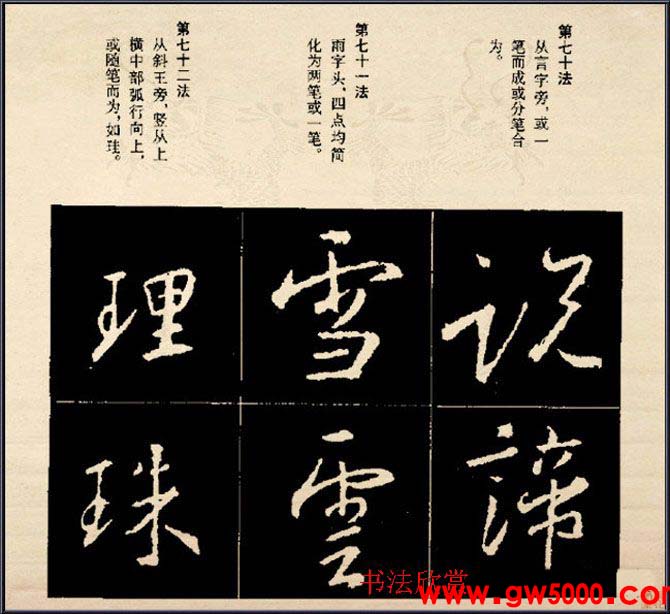 第七十法
从言字旁，或一
笔而成或分笔合
为。
第七十一法
雨字头，四点均简
化为两笔或一笔。
第七十二法
从斜王旁，竖从上
横中部弧行向上，
或随笔而为，如珪。
说
諦
雪
雲
理
珠
书法欣赏
www.gw5000.co